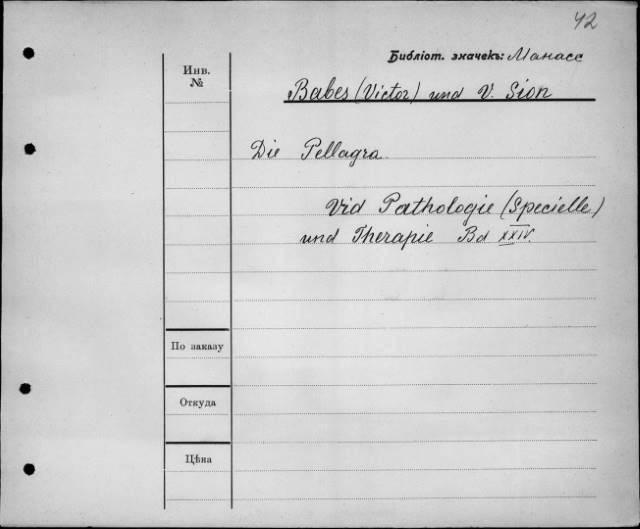 42
Библіот. значекъ: Манасс
Инв.
№
Babes (Victor) und V. Sion
Die Pellagra.
Vid Pathologie (Specielle)
und Therapie Bd XXIV.
По заказу
Откуда
Цѣна